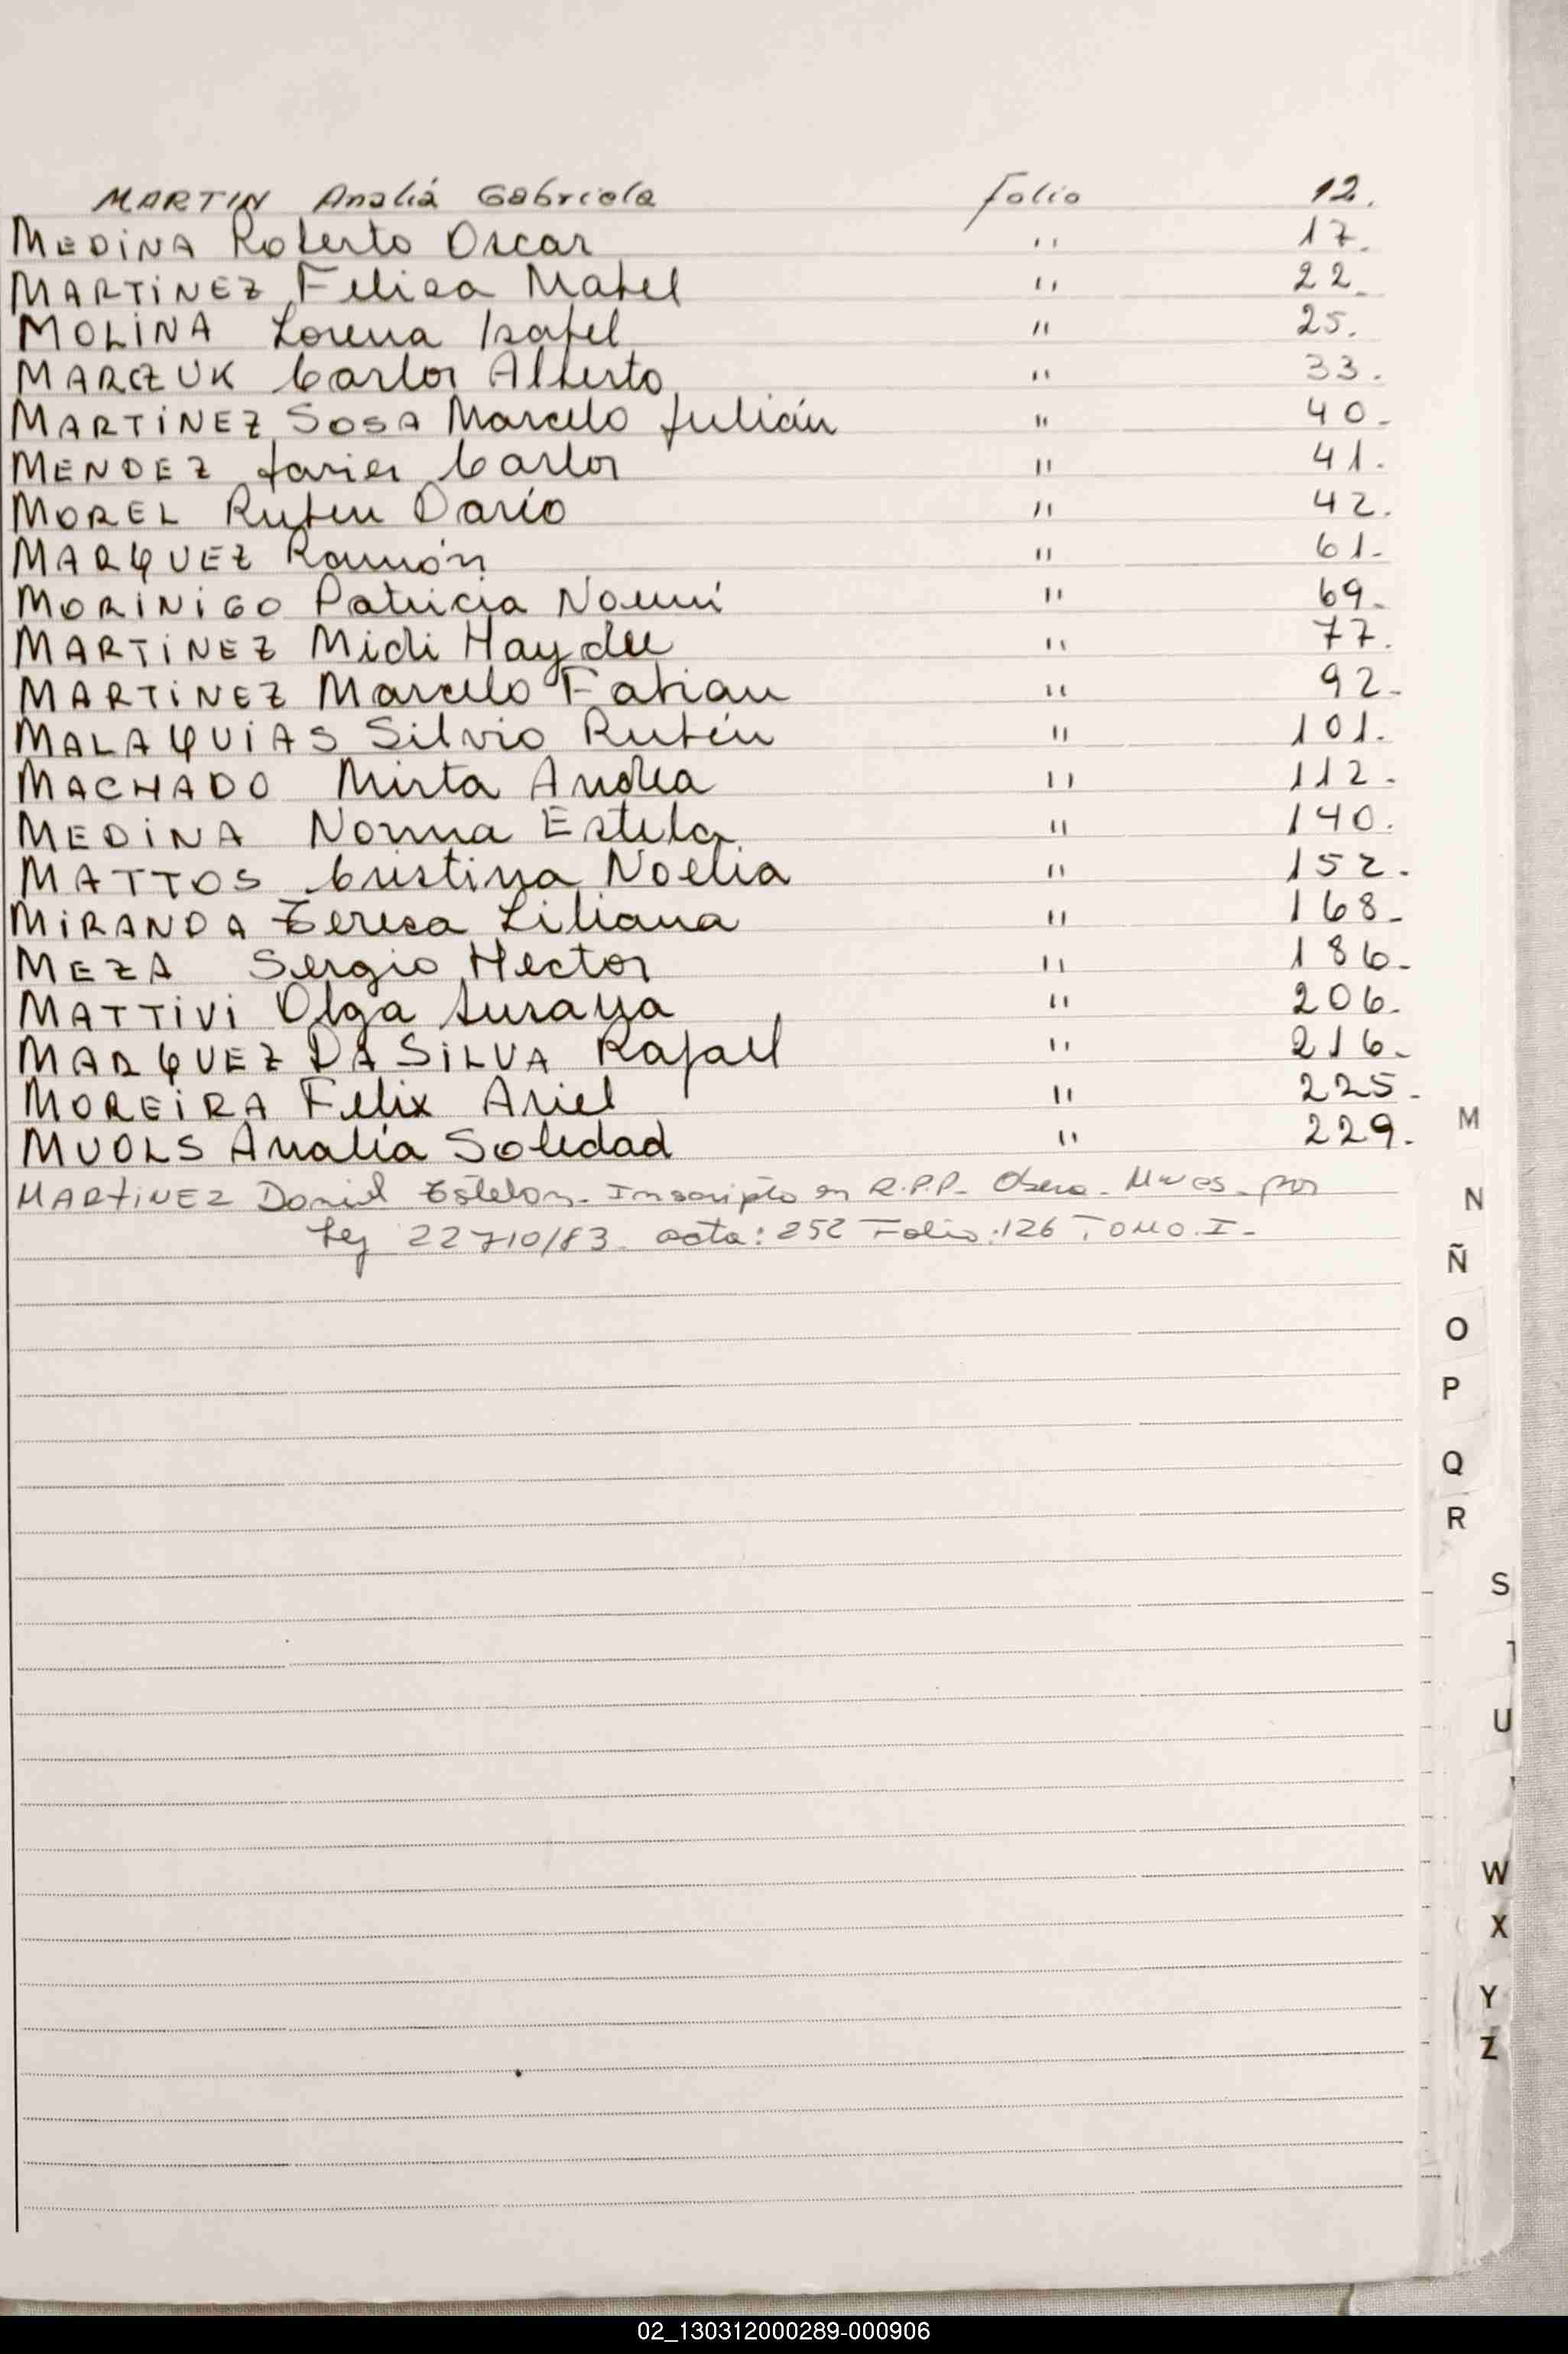 MARTIN Analiá Gabriela Folio 12.
MEDINA Roberto Oscar " 17.
MARTINEZ Felisa Mabel " 22.
MOLINA Lorena Isabel " 25.
MARCZUK Carlos Alberto " 33.
MARTINEZ SOSA Marcelo Julián " 40.
MENDEZ Javier Carlos " 41.
MOREL Ruben Darío " 42.
MARQUEZ Ramón " 61.
MORINIGO Patricia Noemí " 69.
MARTINEZ Midi Haydee " 77.
MARTINEZ Marcelo Fabian " 92.
MALAQUIAS Silvio Rubén " 101.
MACHADO Mirta Andrea " 112.
MEDINA Norma Estela " 140.
MATTOS Cristina Noelia " 152.
MIRANDA Teresa Liliana " 168.
MEZA Sergio Hector " 186.
MATTIVI Olga Susana " 206.
MARQUEZ DA SILVA Rafael " 216.
MOREIRA Felix Ariel " 225.
MUOLS Analía Soledad " 229.
MARTINEZ Daniel Inscripto en R.P.P. Obera - por
Ley 22710/83 acta: 252 Folio: 126 TOMO.I-
M
N
Ñ
O
P
Q
R
S
U
W
X
Y
Z
02_130312000289-000906